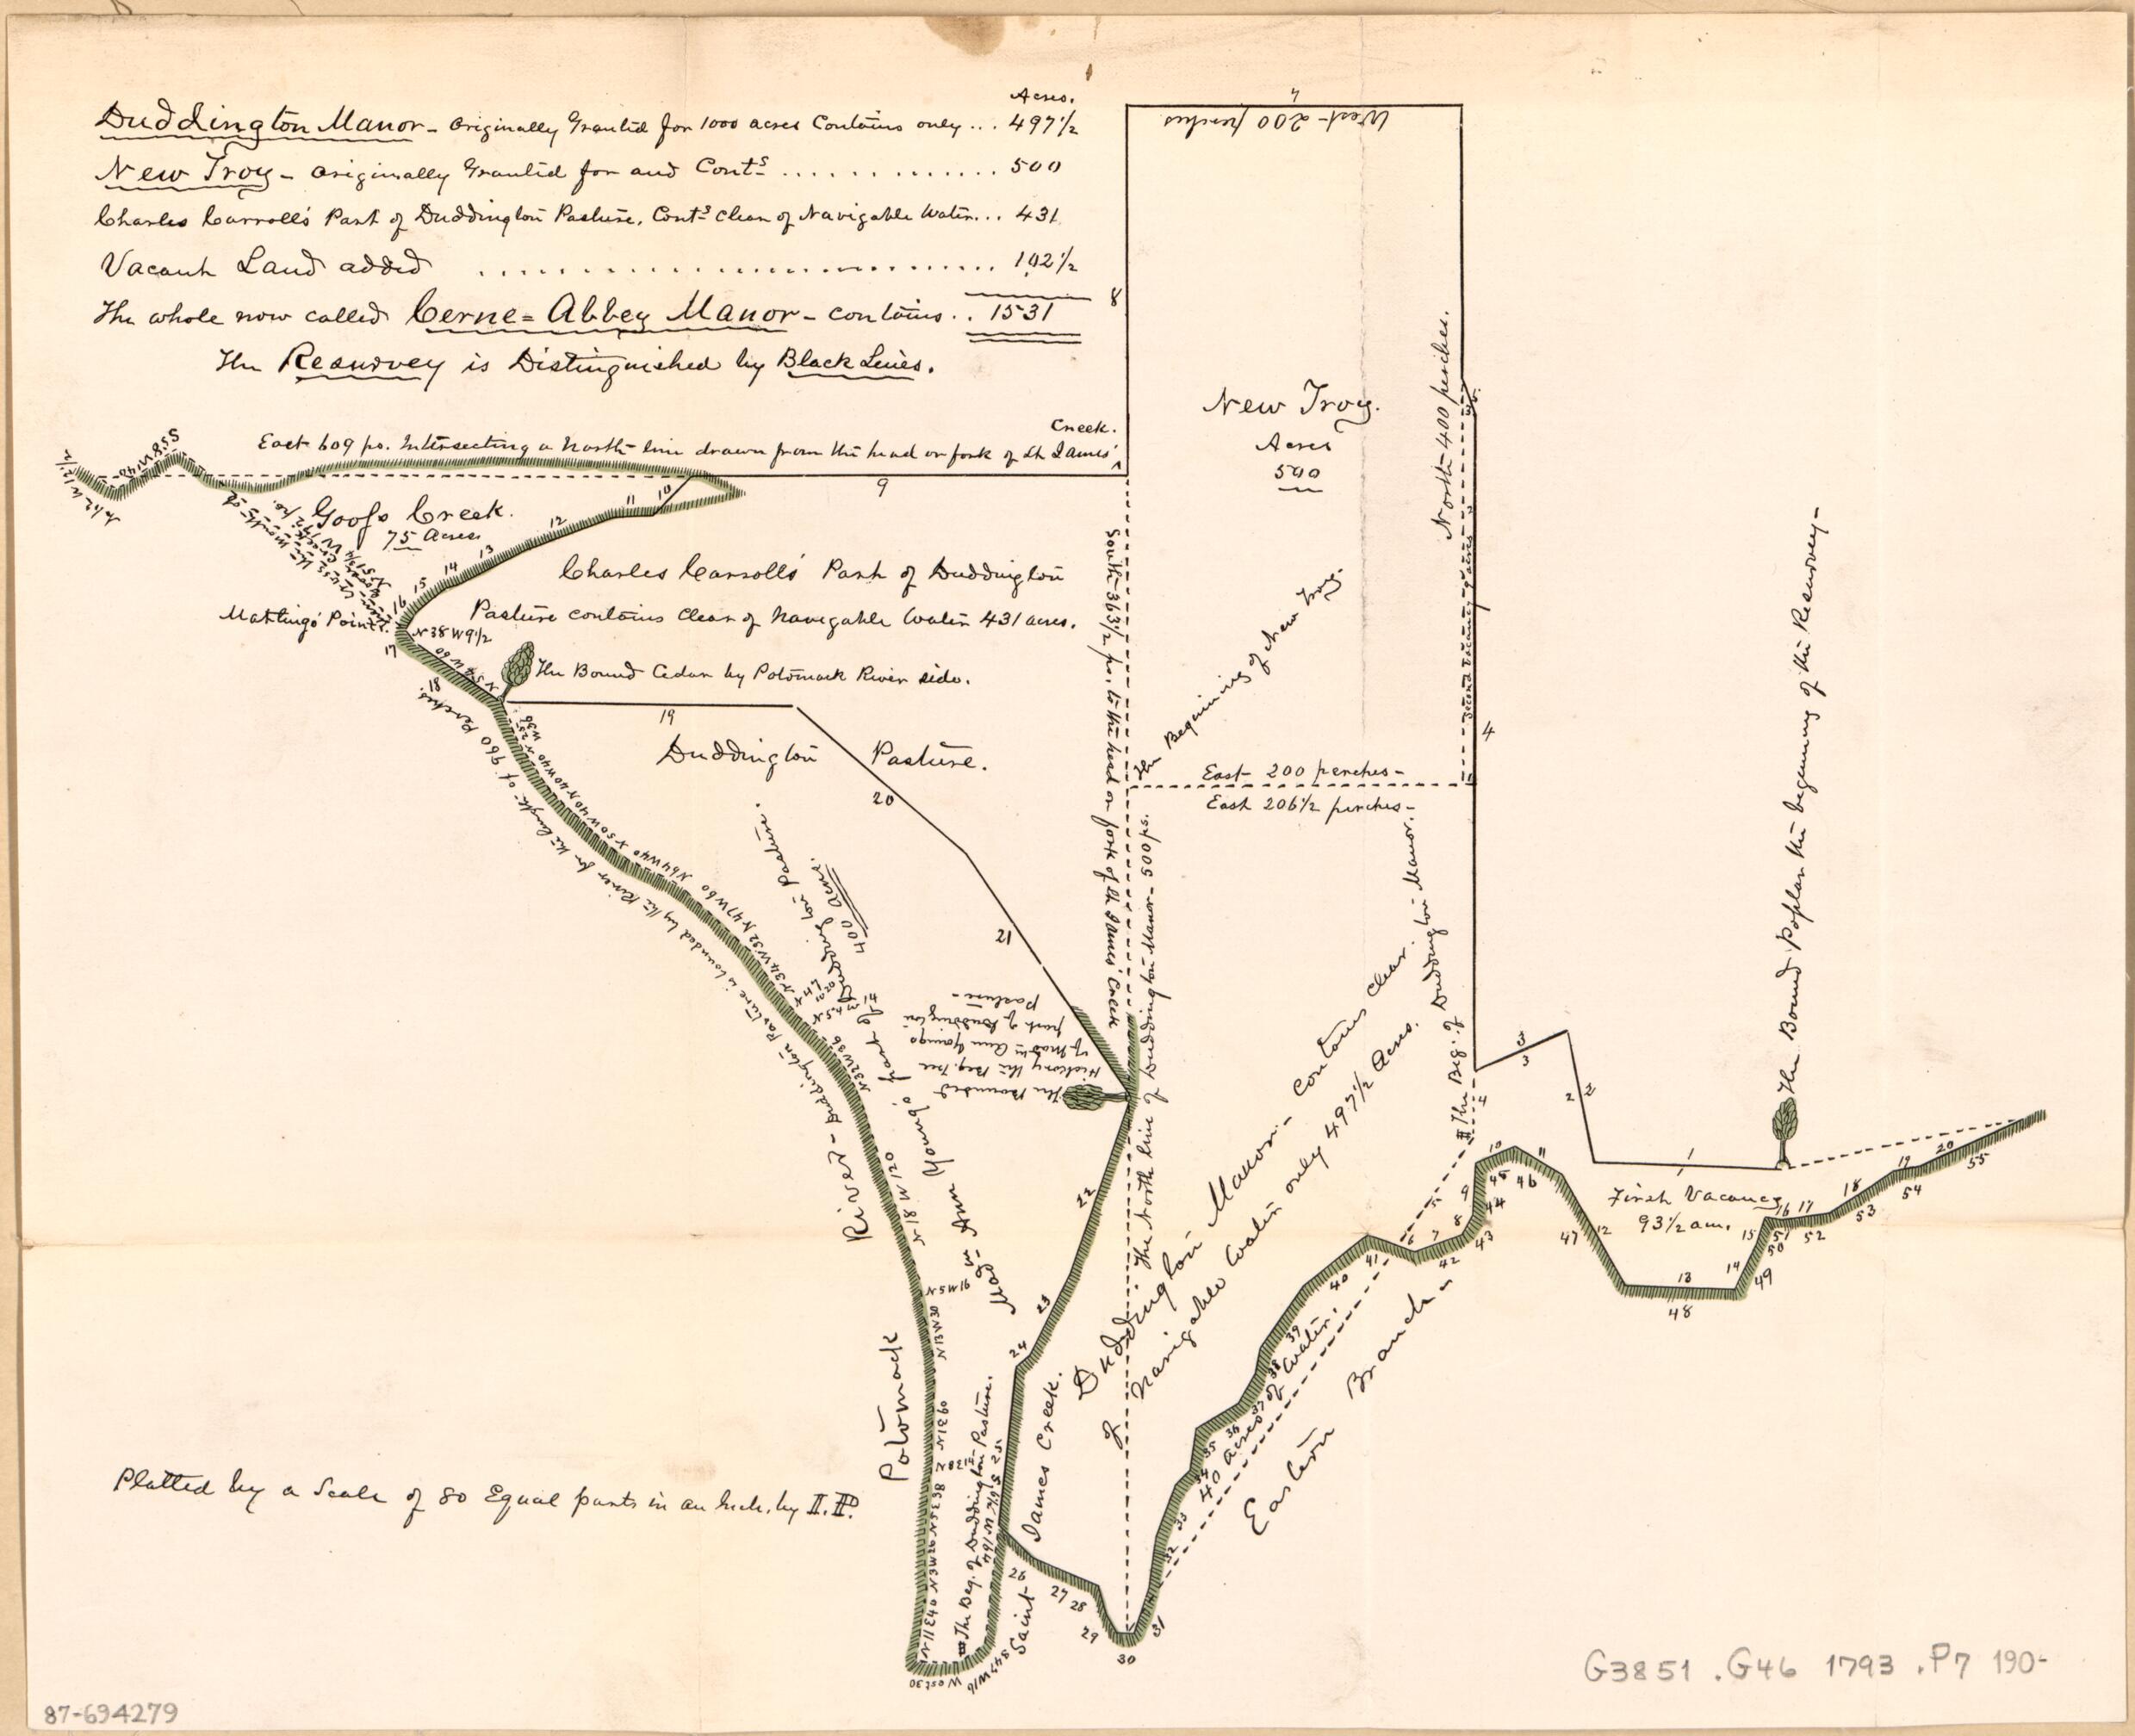 Acres.
Duddington Manor - Originally Granted for 1000 acres Contains only ... 497 1/2
New Troy - Originally Granted for and Conts ............. 500
Charles Carroll's Part of Duddington Pasture, Conts clear of Navigable Water... 431
Vacant Land added ............................ 102 1/2
The whole now called Cerne=Abbey Manor - contains .. 1531
The Resurvey is Distinguished by Black Lines.
West 200 perches
7
8
North 400 perches.
New Troy.
Acres
500
Creek.
East 609 ps. Intersecting a North line drawn from the head or fork of St James'
9
10
11
12
13
14
15
16
17
18
Goose Creek.
75 Acres
Charles Carroll's Part of Duddington
Pasture contains Clear of Navigable Water 431 acres.
Mattings Point.
N38W9 1/2
N54W60
The Bound Cedar by Potomack River side.
19
Duddington Pasture.
20
21
South 363 1/2 ps. to the head or fork of St James' Creek
The Beginning of New Troy.
East 200 perches -
East 206 1/2 perches -
4
The North line of Duddington Manor 500 ps.
River - Duddington Pasture is bounded by the River for the length of 960 Perches.
N40W40
N50W40
N64W40
N47W60
N34W32
N32W36
N18W120
N5W16
N13W30
N1E60
N3W26
N11E40
West 30
S47W16
Madm Ann Young's part of Duddington Pasture.
400 Acres
The Bounded
Hickory the Beg. Tree
of Madm Ann Youngs
part of Duddington
Pasture -
The Beg. of Duddington Manor.
Duddington Manor - Contains clear
of Navigable Water only 497 1/2 Acres.
The Bound Poplar the beginning of the Resurvey -
3
3
2 2
1
1
4
5
6
7
8
9
10
11
12
13
14
15
16
17
18
19
20
First Vacancy
93 1/2 acrs.
22
23
24
25
26
27
28
29
30
31
32
33
34
35
36
37
38
39
40
41
42
43
44
45
46
47
48
49
50
51
52
53
54
55
40 Acres of Water.
Eastern Branch -
Potomack
Saint James Creek.
The Beg. of Duddington Pasture.
Platted by a Scale of 80 Equal parts in an Inch, by I.P.
G3851 .G46 1793 .P7 190-
87-694279